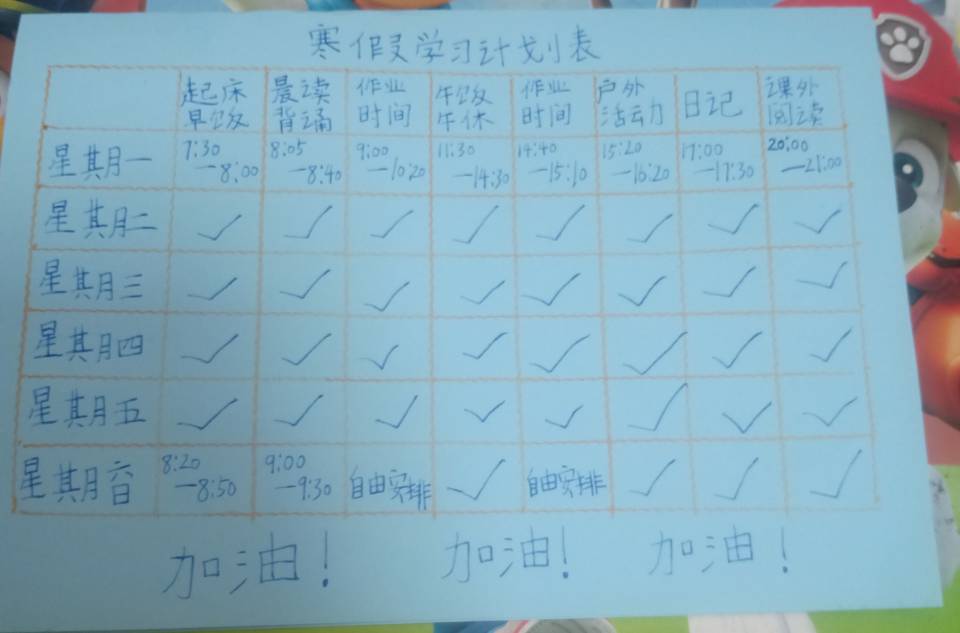 寒假学习计划表
起床早饭 晨读背诵 作业时间 午饭午休 作业时间 户外活动 日记 课外阅读
星期一 7:30—8:00 8:05—8:40 9:00—10:20 11:30—14:30 14:40—15:10 15:20—16:20 17:00—17:30 20:00—21:00
星期二 ✓ ✓ ✓ ✓ ✓ ✓ ✓ ✓
星期三 ✓ ✓ ✓ ✓ ✓ ✓ ✓ ✓
星期四 ✓ ✓ ✓ ✓ ✓ ✓ ✓ ✓
星期五 ✓ ✓ ✓ ✓ ✓ ✓ ✓ ✓
星期六日 8:20—8:50 9:00—9:30 自由安排 ✓ 自由安排 ✓ ✓ ✓
加油! 加油! 加油!